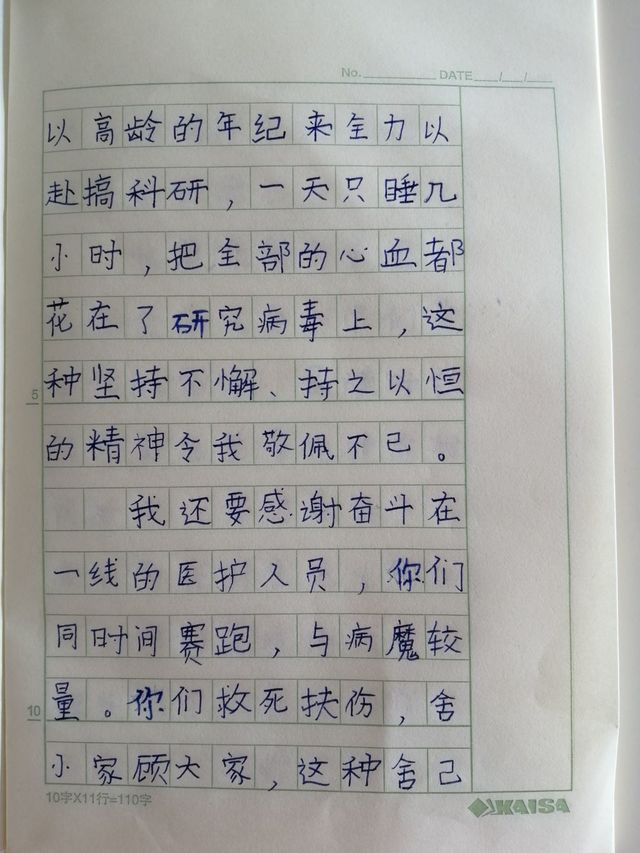 No. DATE / /
以高龄的年纪来全力以
赴搞科研，一天只睡几
小时，把全部的心血都
花在了研究病毒上，这
种坚持不懈、持之以恒
的精神令我敬佩不已。
我还要感谢奋斗在
一线的医护人员，你们
同时间赛跑，与病魔较
量。你们救死扶伤，舍
小家顾大家，这种舍己
5
10
10字X11行=110字
KAISA